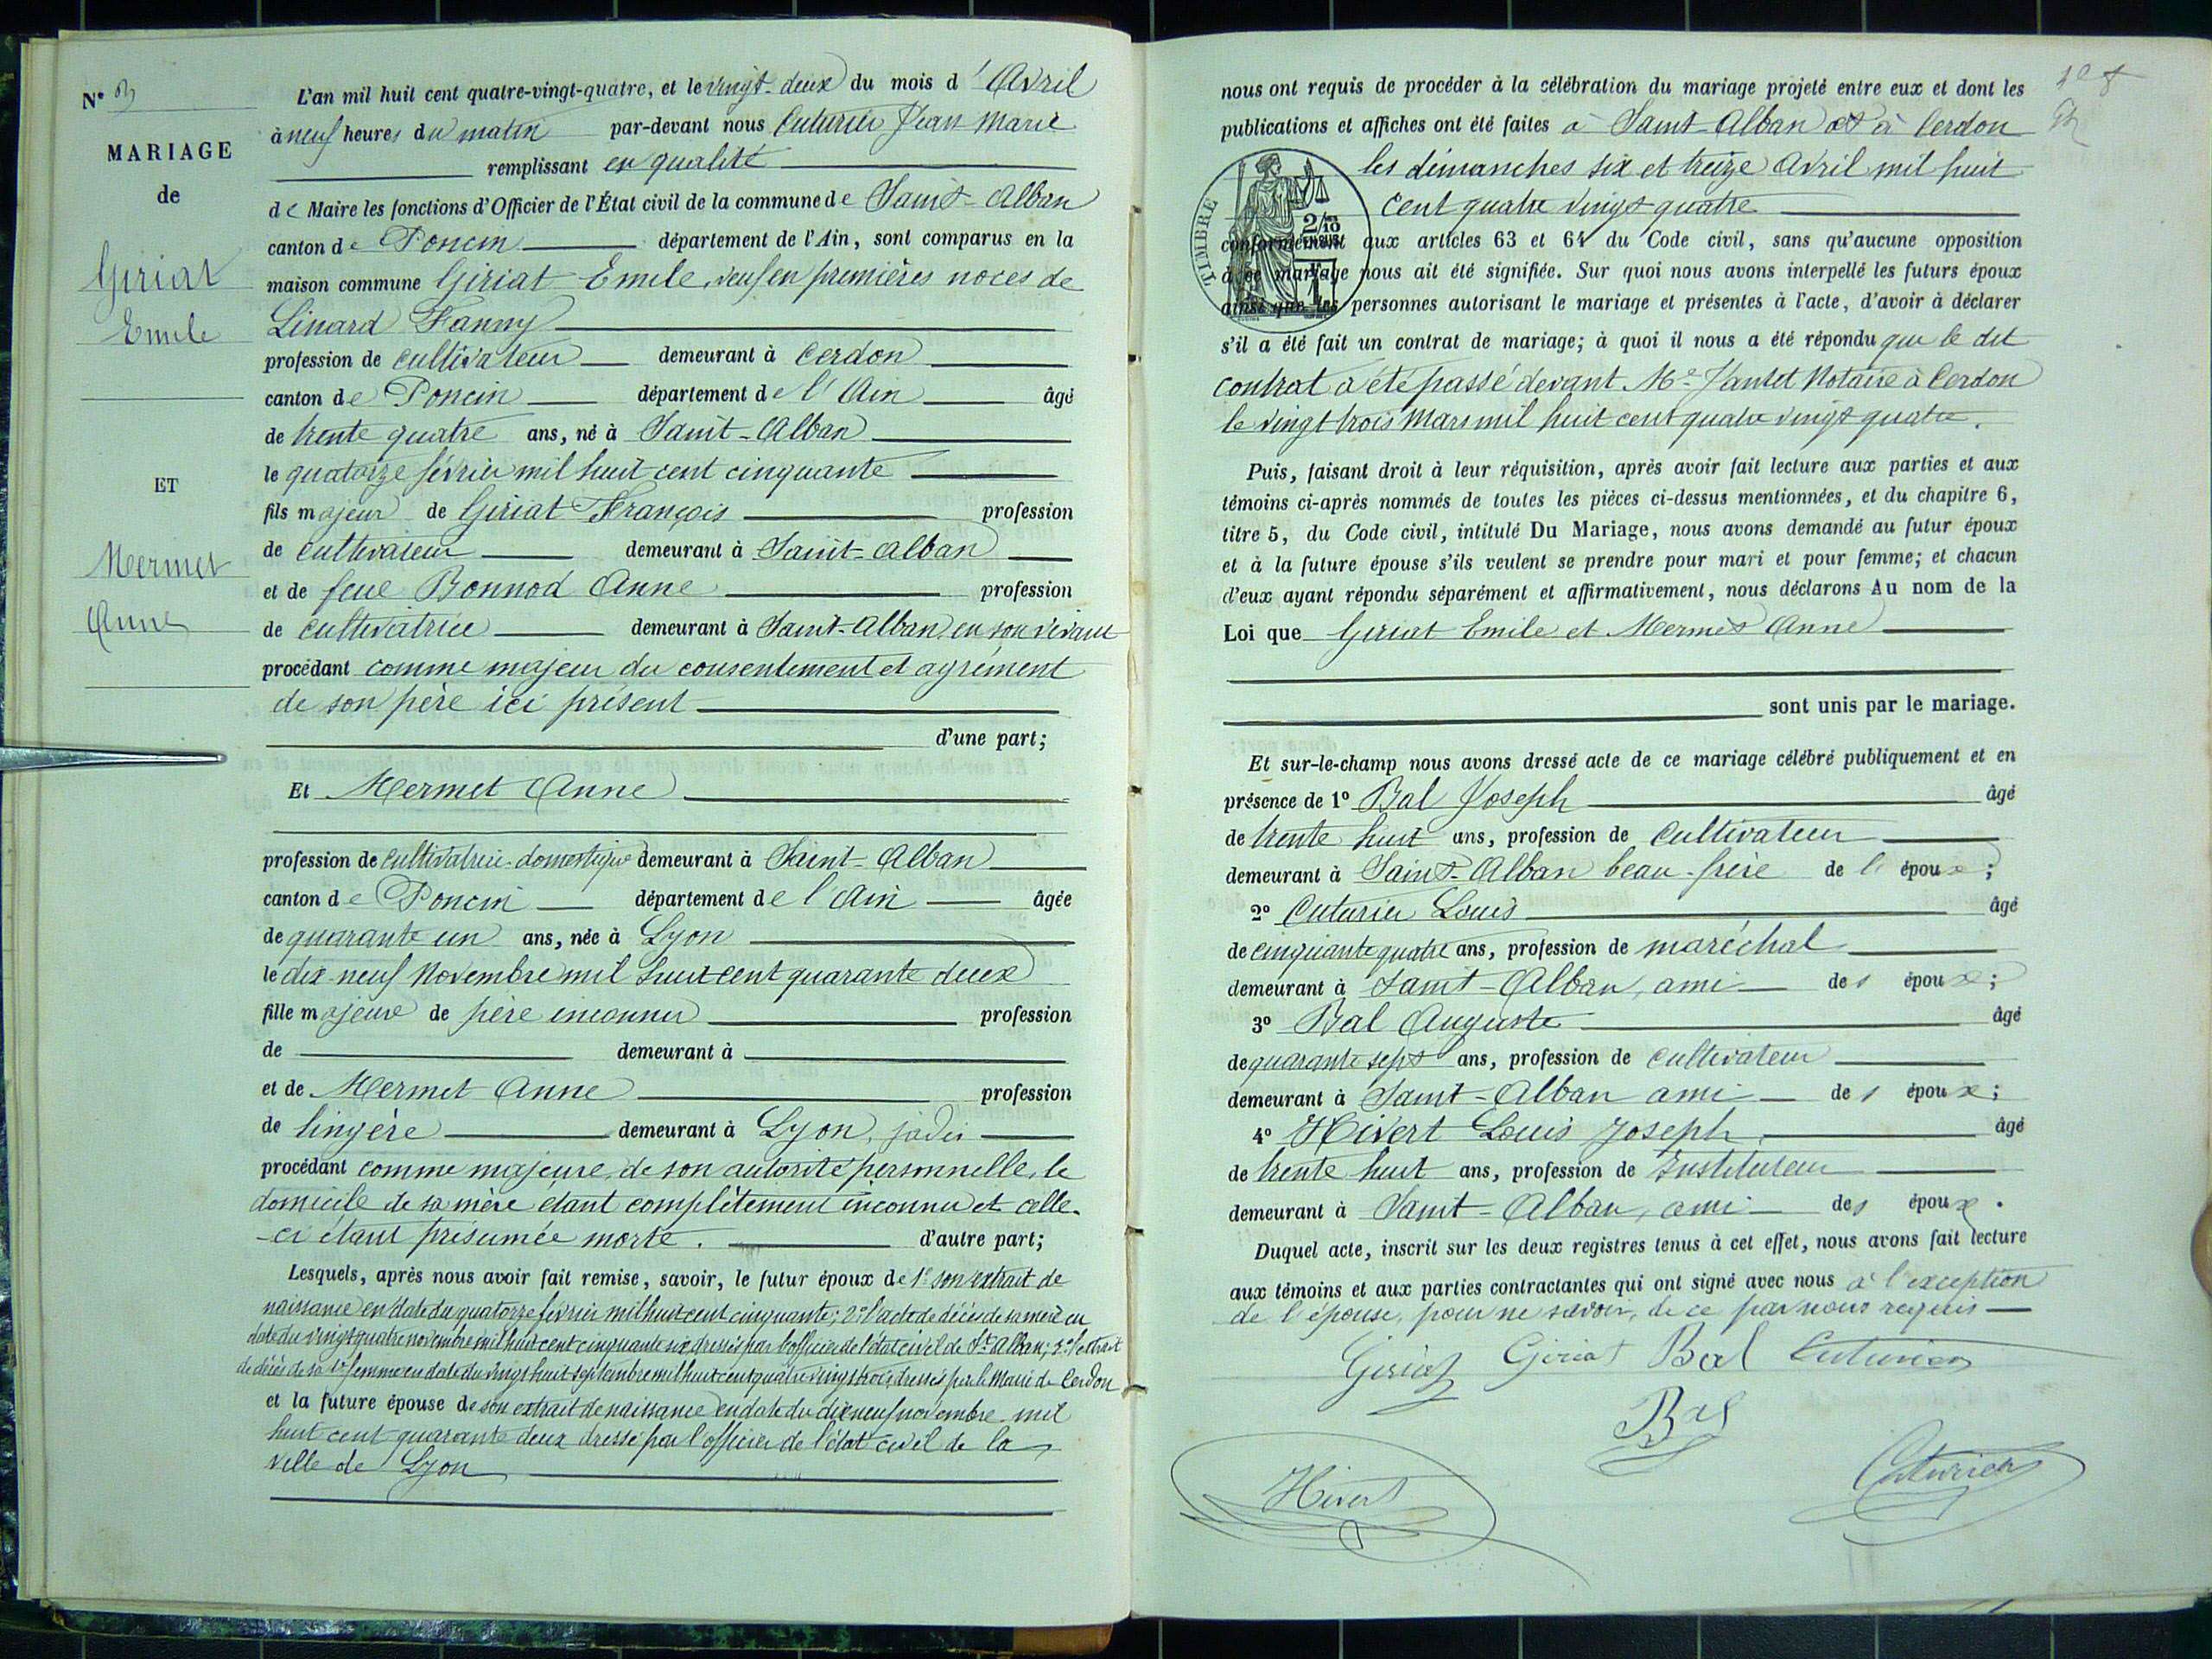 N° 3
MARIAGE
de
Giriat
Emile
ET
Mermet
Anne
L'an mil huit cent quatre-vingt-quatre, et le vingt-deux du mois d'Avril
à neuf heures du matin par-devant nous Cuturier Jean Marie
remplissant en qualité
de Maire les fonctions d'Officier de l'État civil de la commune de Saint-Alban
canton de Poncin département de l'Ain, sont comparus en la
maison commune Giriat Emile, veuf en premières noces de
Linard Fanny
profession de cultivateur demeurant à Cerdon
canton de Poncin département de l'Ain âgé
de trente quatre ans, né à Saint-Alban
le quatorze février mil huit cent cinquante
fils majeur de Giriat François profession
de cultivateur demeurant à Saint-Alban
et de feue Bonnod Anne profession
de cultivatrice demeurant à Saint-Alban en son vivant
procédant comme majeur du consentement et agrément
de son père ici présent
d'une part;
Et Mermet Anne
profession de cultivatrice-domestique demeurant à Saint-Alban
canton de Poncin département de l'Ain âgée
de quarante un ans, née à Lyon
le dix-neuf Novembre mil huit cent quarante deux
fille majeure de père inconnu profession
de demeurant à
et de Mermet Anne profession
de lingère demeurant à Lyon, jadis
procédant comme majeure, de son autorité personnelle, le
domicile de sa mère étant complètement inconnu et celle-
-ci étant présumée morte. d'autre part;
Lesquels, après nous avoir fait remise, savoir, le futur époux de 1° son extrait de
naissance en date du quatorze février mil huit cent cinquante; 2° l'acte de décès de sa mère en
date du vingt quatre novembre mil huit cent cinquante six dressés par l'officier de l'état civil de St Alban; 3° l'extrait
de décès de sa 1re femme en date du vingt huit septembre mil huit cent quatre vingt trois, dressés par le Maire de Cerdon
et la future épouse de son extrait de naissance en date du dix neuf novembre mil
huit cent quarante deux dressé par l'officier de l'état civil de la
ville de Lyon
nous ont requis de procéder à la célébration du mariage projeté entre eux et dont les
publications et affiches ont été faites à Saint-Alban et à Cerdon
les dimanches six et treize Avril mil huit
cent quatre vingt quatre
TIMBRE
2/10
EN SUS
1F
conformément aux articles 63 et 64 du Code civil, sans qu'aucune opposition
à ce mariage nous ait été signifiée. Sur quoi nous avons interpellé les futurs époux
ainsi que les personnes autorisant le mariage et présentes à l'acte, d'avoir à déclarer
s'il a été fait un contrat de mariage; à quoi il nous a été répondu que le dit
contrat a été passé devant Me Jantet Notaire à Cerdon
le vingt trois Mars mil huit cent quatre vingt quatre.
Puis, faisant droit à leur réquisition, après avoir fait lecture aux parties et aux
témoins ci-après nommés de toutes les pièces ci-dessus mentionnées, et du chapitre 6,
titre 5, du Code civil, intitulé Du Mariage, nous avons demandé au futur époux
et à la future épouse s'ils veulent se prendre pour mari et pour femme; et chacun
d'eux ayant répondu séparément et affirmativement, nous déclarons Au nom de la
Loi que Giriat Emile et Mermet Anne
sont unis par le mariage.
Et sur-le-champ nous avons dressé acte de ce mariage célébré publiquement et en
présence de 1° Bal Joseph âgé
de trente huit ans, profession de Cultivateur
demeurant à Saint-Alban beau-frère de l'époux;
2° Cuturier Louis âgé
de cinquante quatre ans, profession de maréchal
demeurant à Saint-Alban, ami des époux;
3° Bal Auguste âgé
de quarante sept ans, profession de cultivateur
demeurant à Saint-Alban ami des époux;
4° Hivert Louis Joseph âgé
de trente huit ans, profession de Instituteur
demeurant à Saint-Alban, ami des époux.
Duquel acte, inscrit sur les deux registres tenus à cet effet, nous avons fait lecture
aux témoins et aux parties contractantes qui ont signé avec nous à l'exception
de l'épouse, pour ne savoir, de ce par nous requis
Giriat Giriat Bal Cuturier
Bal
Hivert Cuturier